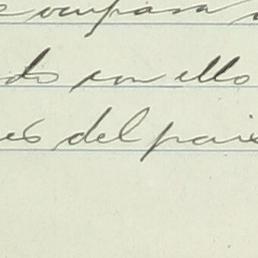 ocupara
do con ello
es del pais